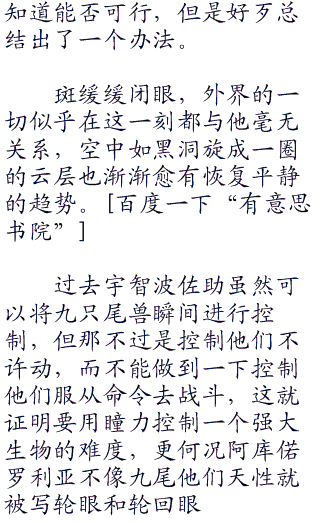 知道能否可行，但是好歹总
结出了一个办法。
斑缓缓闭眼，外界的一
切似乎在这一刻都与他毫无
关系，空中如黑洞旋成一圈
的云层也渐渐愈有恢复平静
的趋势。[百度一下“有意思
书院”]
过去宇智波佐助虽然可
以将九只尾兽瞬间进行控
制，但那不过是控制他们不
许动，而不能做到一下控制
他们服从命令去战斗，这就
证明要用瞳力控制一个强大
生物的难度，更何况阿库偌
罗利亚不像九尾他们天性就
被写轮眼和轮回眼